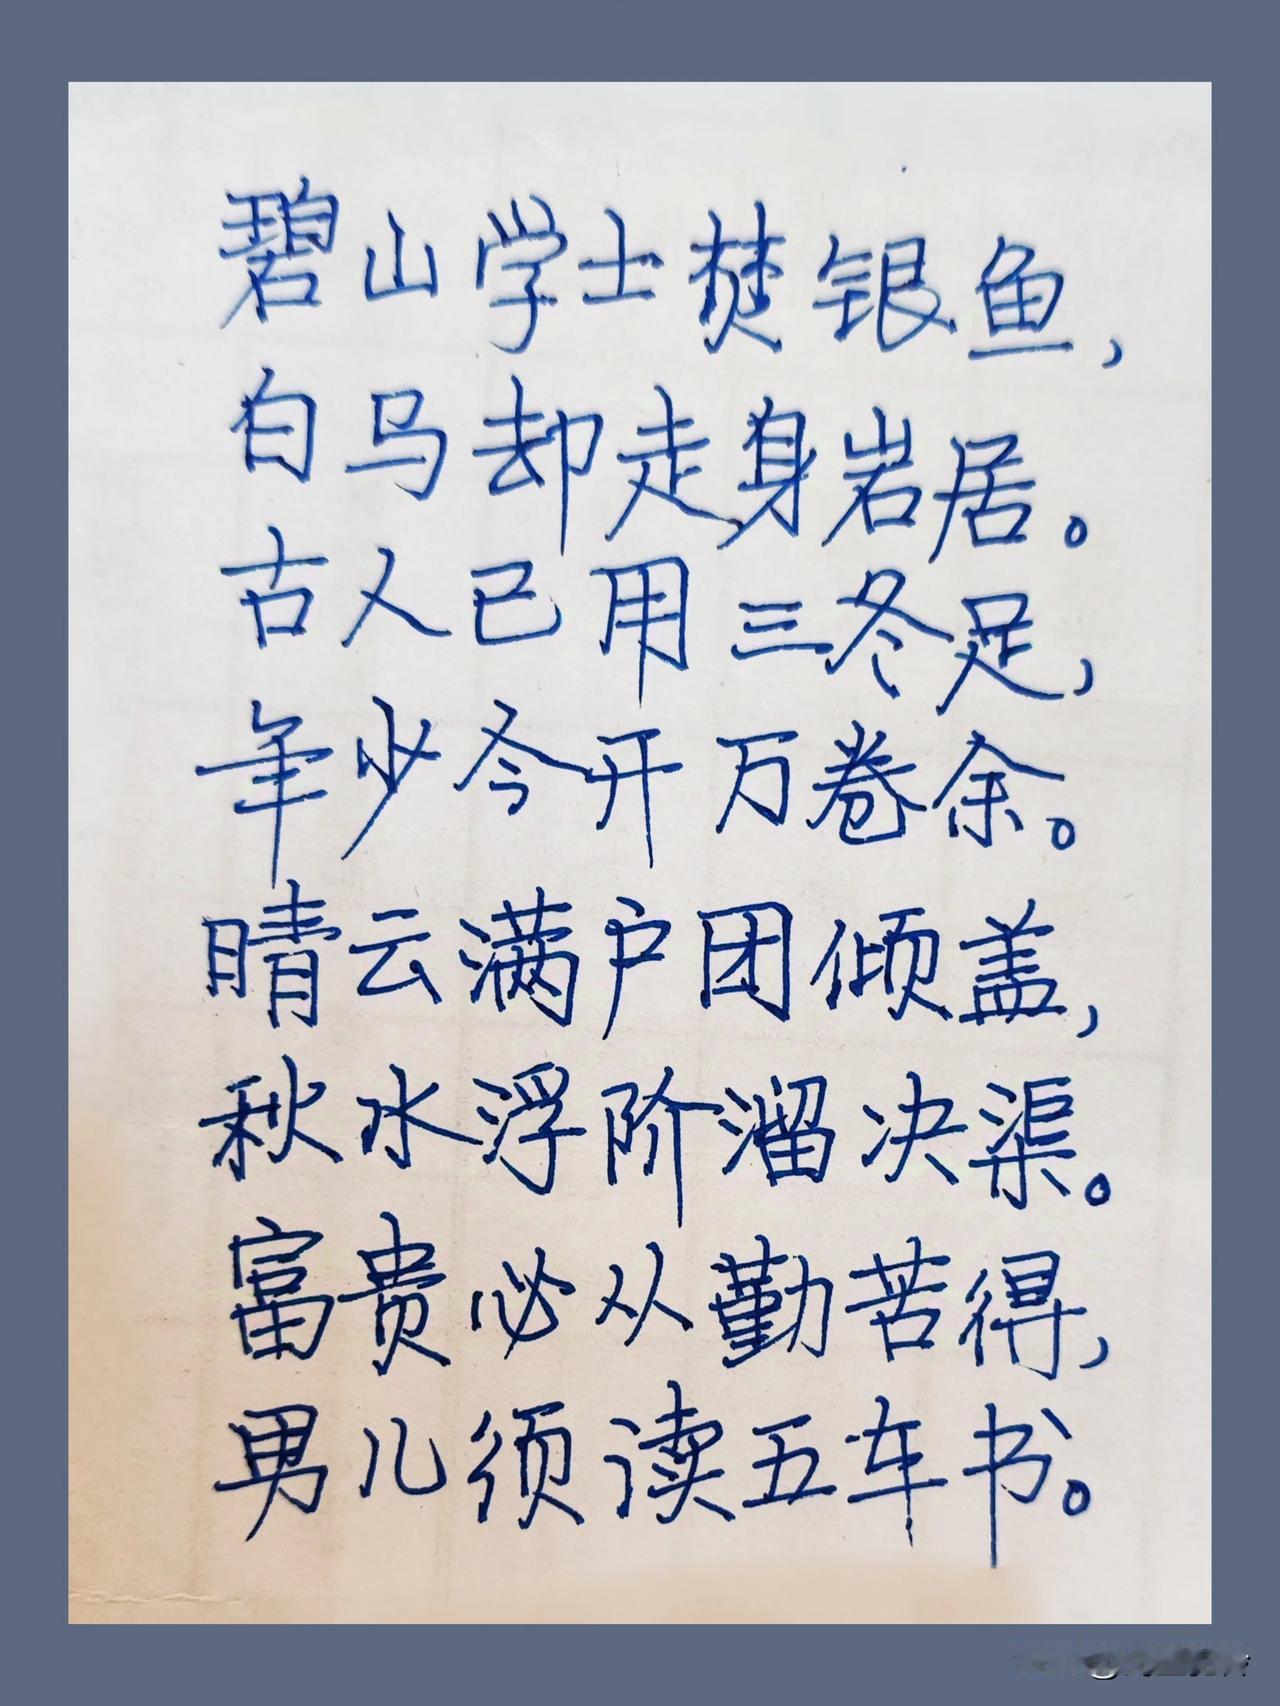 碧山学士焚银鱼，
白马却走身岩居。
古人已用三冬足，
年少今开万卷余。
晴云满户团倾盖，
秋水浮阶溜决渠。
富贵必从勤苦得，
男儿须读五车书。